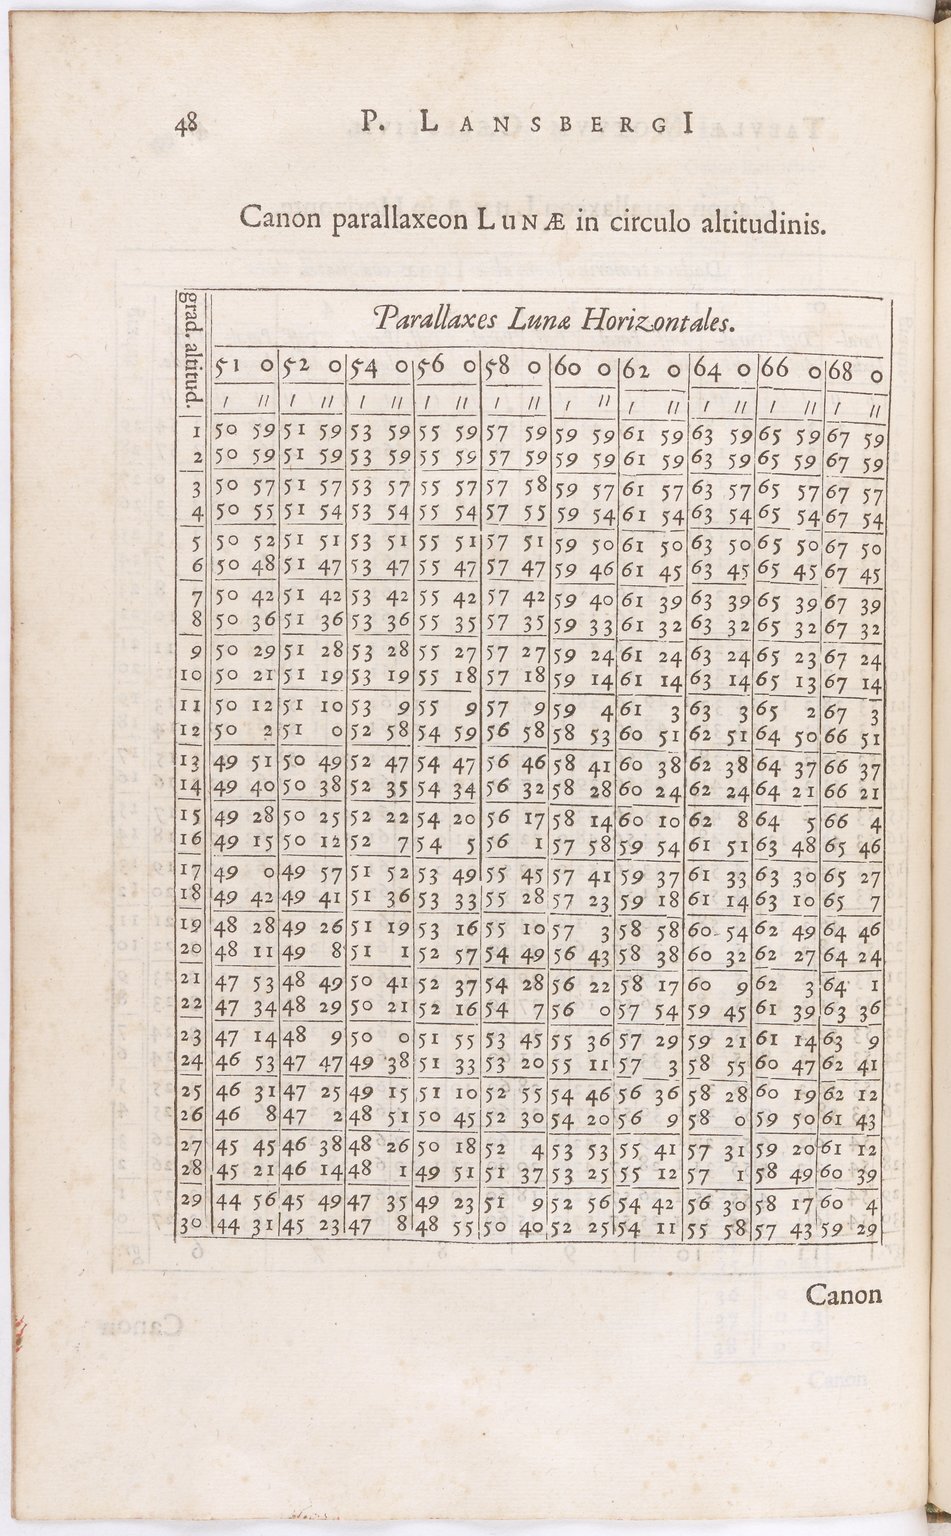 48 P. LANSBERGI
Canon parallaxeon LUNÆ in circulo altitudinis.
grad. altitud.
Parallaxes Lunæ Horizontales.
51 0 52 0 54 0 56 0 58 0 60 0 62 0 64 0 66 0 68 0
′ ″ ′ ″ ′ ″ ′ ″ ′ ″ ′ ″ ′ ″ ′ ″ ′ ″ ′ ″
1 50 59 51 59 53 59 55 59 57 59 59 59 61 59 63 59 65 59 67 59
2 50 59 51 59 53 59 55 59 57 59 59 59 61 59 63 59 65 59 67 59
3 50 57 51 57 53 57 55 57 57 58 59 57 61 57 63 57 65 57 67 57
4 50 55 51 54 53 54 55 54 57 55 59 54 61 54 63 54 65 54 67 54
5 50 52 51 51 53 51 55 51 57 51 59 50 61 50 63 50 65 50 67 50
6 50 48 51 47 53 47 55 47 57 47 59 46 61 45 63 45 65 45 67 45
7 50 42 51 42 53 42 55 42 57 42 59 40 61 39 63 39 65 39 67 39
8 50 36 51 36 53 36 55 35 57 35 59 33 61 32 63 32 65 32 67 32
9 50 29 51 28 53 28 55 27 57 27 59 24 61 24 63 24 65 23 67 24
10 50 21 51 19 53 19 55 18 57 18 59 14 61 14 63 14 65 13 67 14
11 50 12 51 10 53 9 55 9 57 9 59 4 61 3 63 3 65 2 67 3
12 50 2 51 0 52 58 54 59 56 58 58 53 60 51 62 51 64 50 66 51
13 49 51 50 49 52 47 54 47 56 46 58 41 60 38 62 38 64 37 66 37
14 49 40 50 38 52 35 54 34 56 32 58 28 60 24 62 24 64 21 66 21
15 49 28 50 25 52 22 54 20 56 17 58 14 60 10 62 8 64 5 66 4
16 49 15 50 12 52 7 54 5 56 1 57 58 59 54 61 51 63 48 65 46
17 49 0 49 57 51 52 53 49 55 45 57 41 59 37 61 33 63 30 65 27
18 49 42 49 41 51 36 53 33 55 28 57 23 59 18 61 14 63 10 65 7
19 48 28 49 26 51 19 53 16 55 10 57 3 58 58 60 54 62 49 64 46
20 48 11 49 8 51 1 52 57 54 49 56 43 58 38 60 32 62 27 64 24
21 47 53 48 49 50 41 52 37 54 28 56 22 58 17 60 9 62 3 64 1
22 47 34 48 29 50 21 52 16 54 7 56 0 57 54 59 45 61 39 63 36
23 47 14 48 9 50 0 51 55 53 45 55 36 57 29 59 21 61 14 63 9
24 46 53 47 47 49 38 51 33 53 20 55 11 57 3 58 55 60 47 62 41
25 46 31 47 25 49 15 51 10 52 55 54 46 56 36 58 28 60 19 62 12
26 46 8 47 2 48 51 50 45 52 30 54 20 56 9 58 0 59 50 61 43
27 45 45 46 38 48 26 50 18 52 4 53 53 55 41 57 31 59 20 61 12
28 45 21 46 14 48 1 49 51 51 37 53 25 55 12 57 1 58 49 60 39
29 44 56 45 49 47 35 49 23 51 9 52 56 54 42 56 30 58 17 60 4
30 44 31 45 23 47 8 48 55 50 40 52 25 54 11 55 58 57 43 59 29
Canon